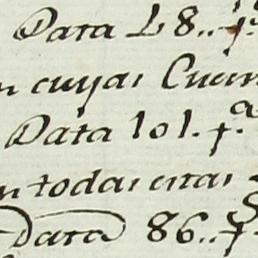 Data L8..
n cuyas Cuen
Data 101.
n todas estas
Data 86..